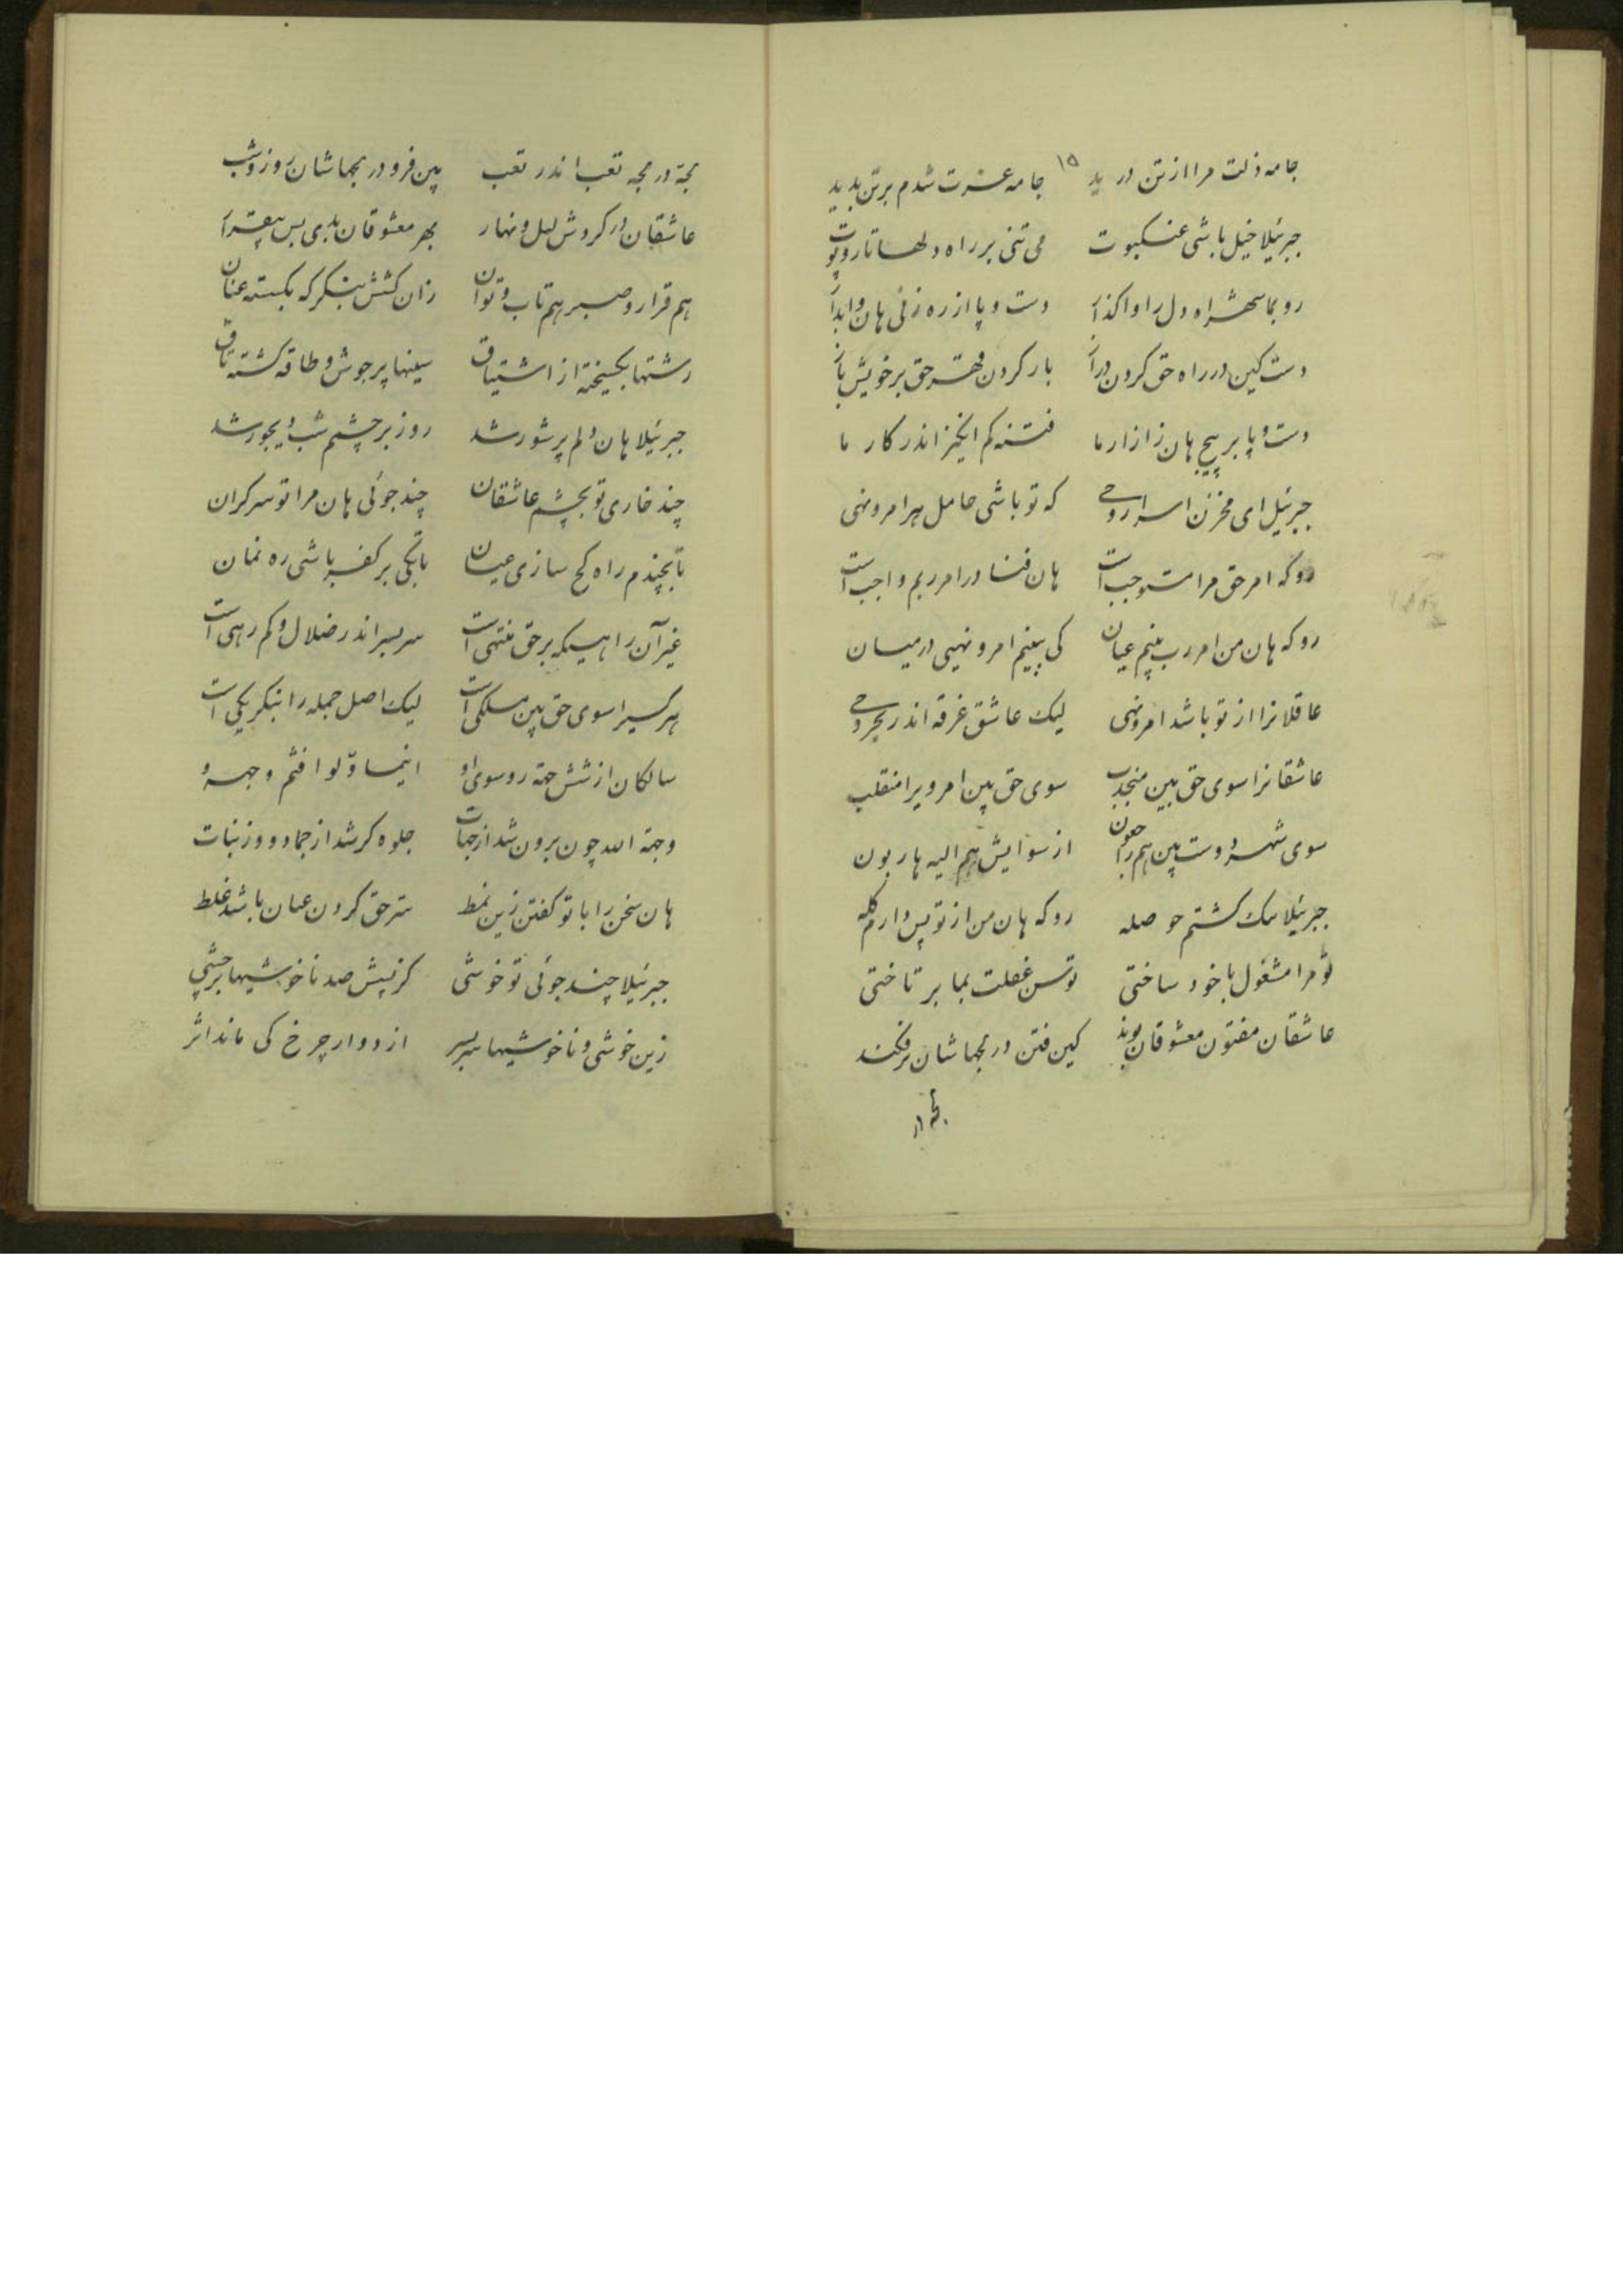 جامه ذلت مرا از تن در ید جامه عزت شدم بر تن بدید
۱۵
جبرئیلا خیل باشی عنکبوت می تنی بر راه دلها تار و پوت
رو بما شهراه دل را واکذار دست و پا از ره زنی هان وابدار
دست کین در راه حق کردن دراز بار کردن قهر حق بر خویش باز
دست و پا بر پیچ هان ز ازار ما فتنه کم انگیز اندر کار ما
جبرئیل ای مخزن اسرار وحی که تو باشی حامل هر امر و نهی
رو که امر حق مرا مستوجب است هان فنا در امر ربم واجب است
رو که هان من امر رب بینم عیان کی ببینم امر و نهیی در میان
عاقلانرا از تو باشد امر و نهی لیک عاشق غرقه اندر بحر وحی
عاشقانرا سوی حق بین منجذب سوی حق بین امر ویرا منقلب
سوی شهر دوست بین هم راجعون از سوایش هم الیه هاربون
جبرئیلا تنک کشتم حوصله رو که هان من از تو پس دارم کله
تو مرا مشغول با خود ساختی توسن غفلت بما بر تاختی
عاشقان مفتون معشوقان بوند کین فتن در لجهاشان بر فکند
لجه در
لجهٔ در لجه تعب اندر تعب بین فرو در لجهاشان روز و شب
عاشقان در کردش لیل و نهار بهر معشوقان بدی بس بیقرار
هم قرار و صبر هم تاب و توان زان کشش بنکر که بکسته عنان
رشتها بکسیخته از اشتیاق سینها پر جوش و طاقه کشته تاق
جبرئیلا هان دلم پر شور شد روز بر چشمم شب دیجور شد
چند خاری تو بچشم عاشقان چند جوئی هان مرا تو سر کران
تا بچندم راه کج سازی عیان تا بکی بر کفر باشی ره نمان
غیر آن راهیکه بر حق منتهی است سر بسر اندر ضلال و کم رهی است
هر کسیرا سوی حق بین مسلکی است لیک اصل جمله را بنکر یکی است
سالکان از شش جهة رو سوی او اینما ولوا فثم وجهه
وجهة الله چون برون شد از جهات جلوه کر شد از جماد و وز نبات
هان سخن را با تو کفتن زین نمط ستر حق کردن عیان باشد غلط
جبرئیلا چند جوئی تو خوشی کز پیش صد ناخوشیها بر چشی
زین خوشی و ناخوشیها سر بسر از دوار چرخ کی ماند اثر